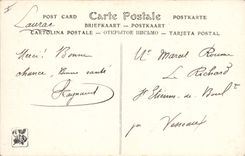 Lauzac
POST CARD Carte Postale POSTKARTE
BRIEFKAART — POSTKAART
CARTOLINA POSTALE — ОТКРЫТОЕ ПИСЬМО — TARJETA POSTAL
Merci! Bonne
chance, bonne santé
Raynaud
Mr Marcel Roume
Le Richard
St Etienne de
par